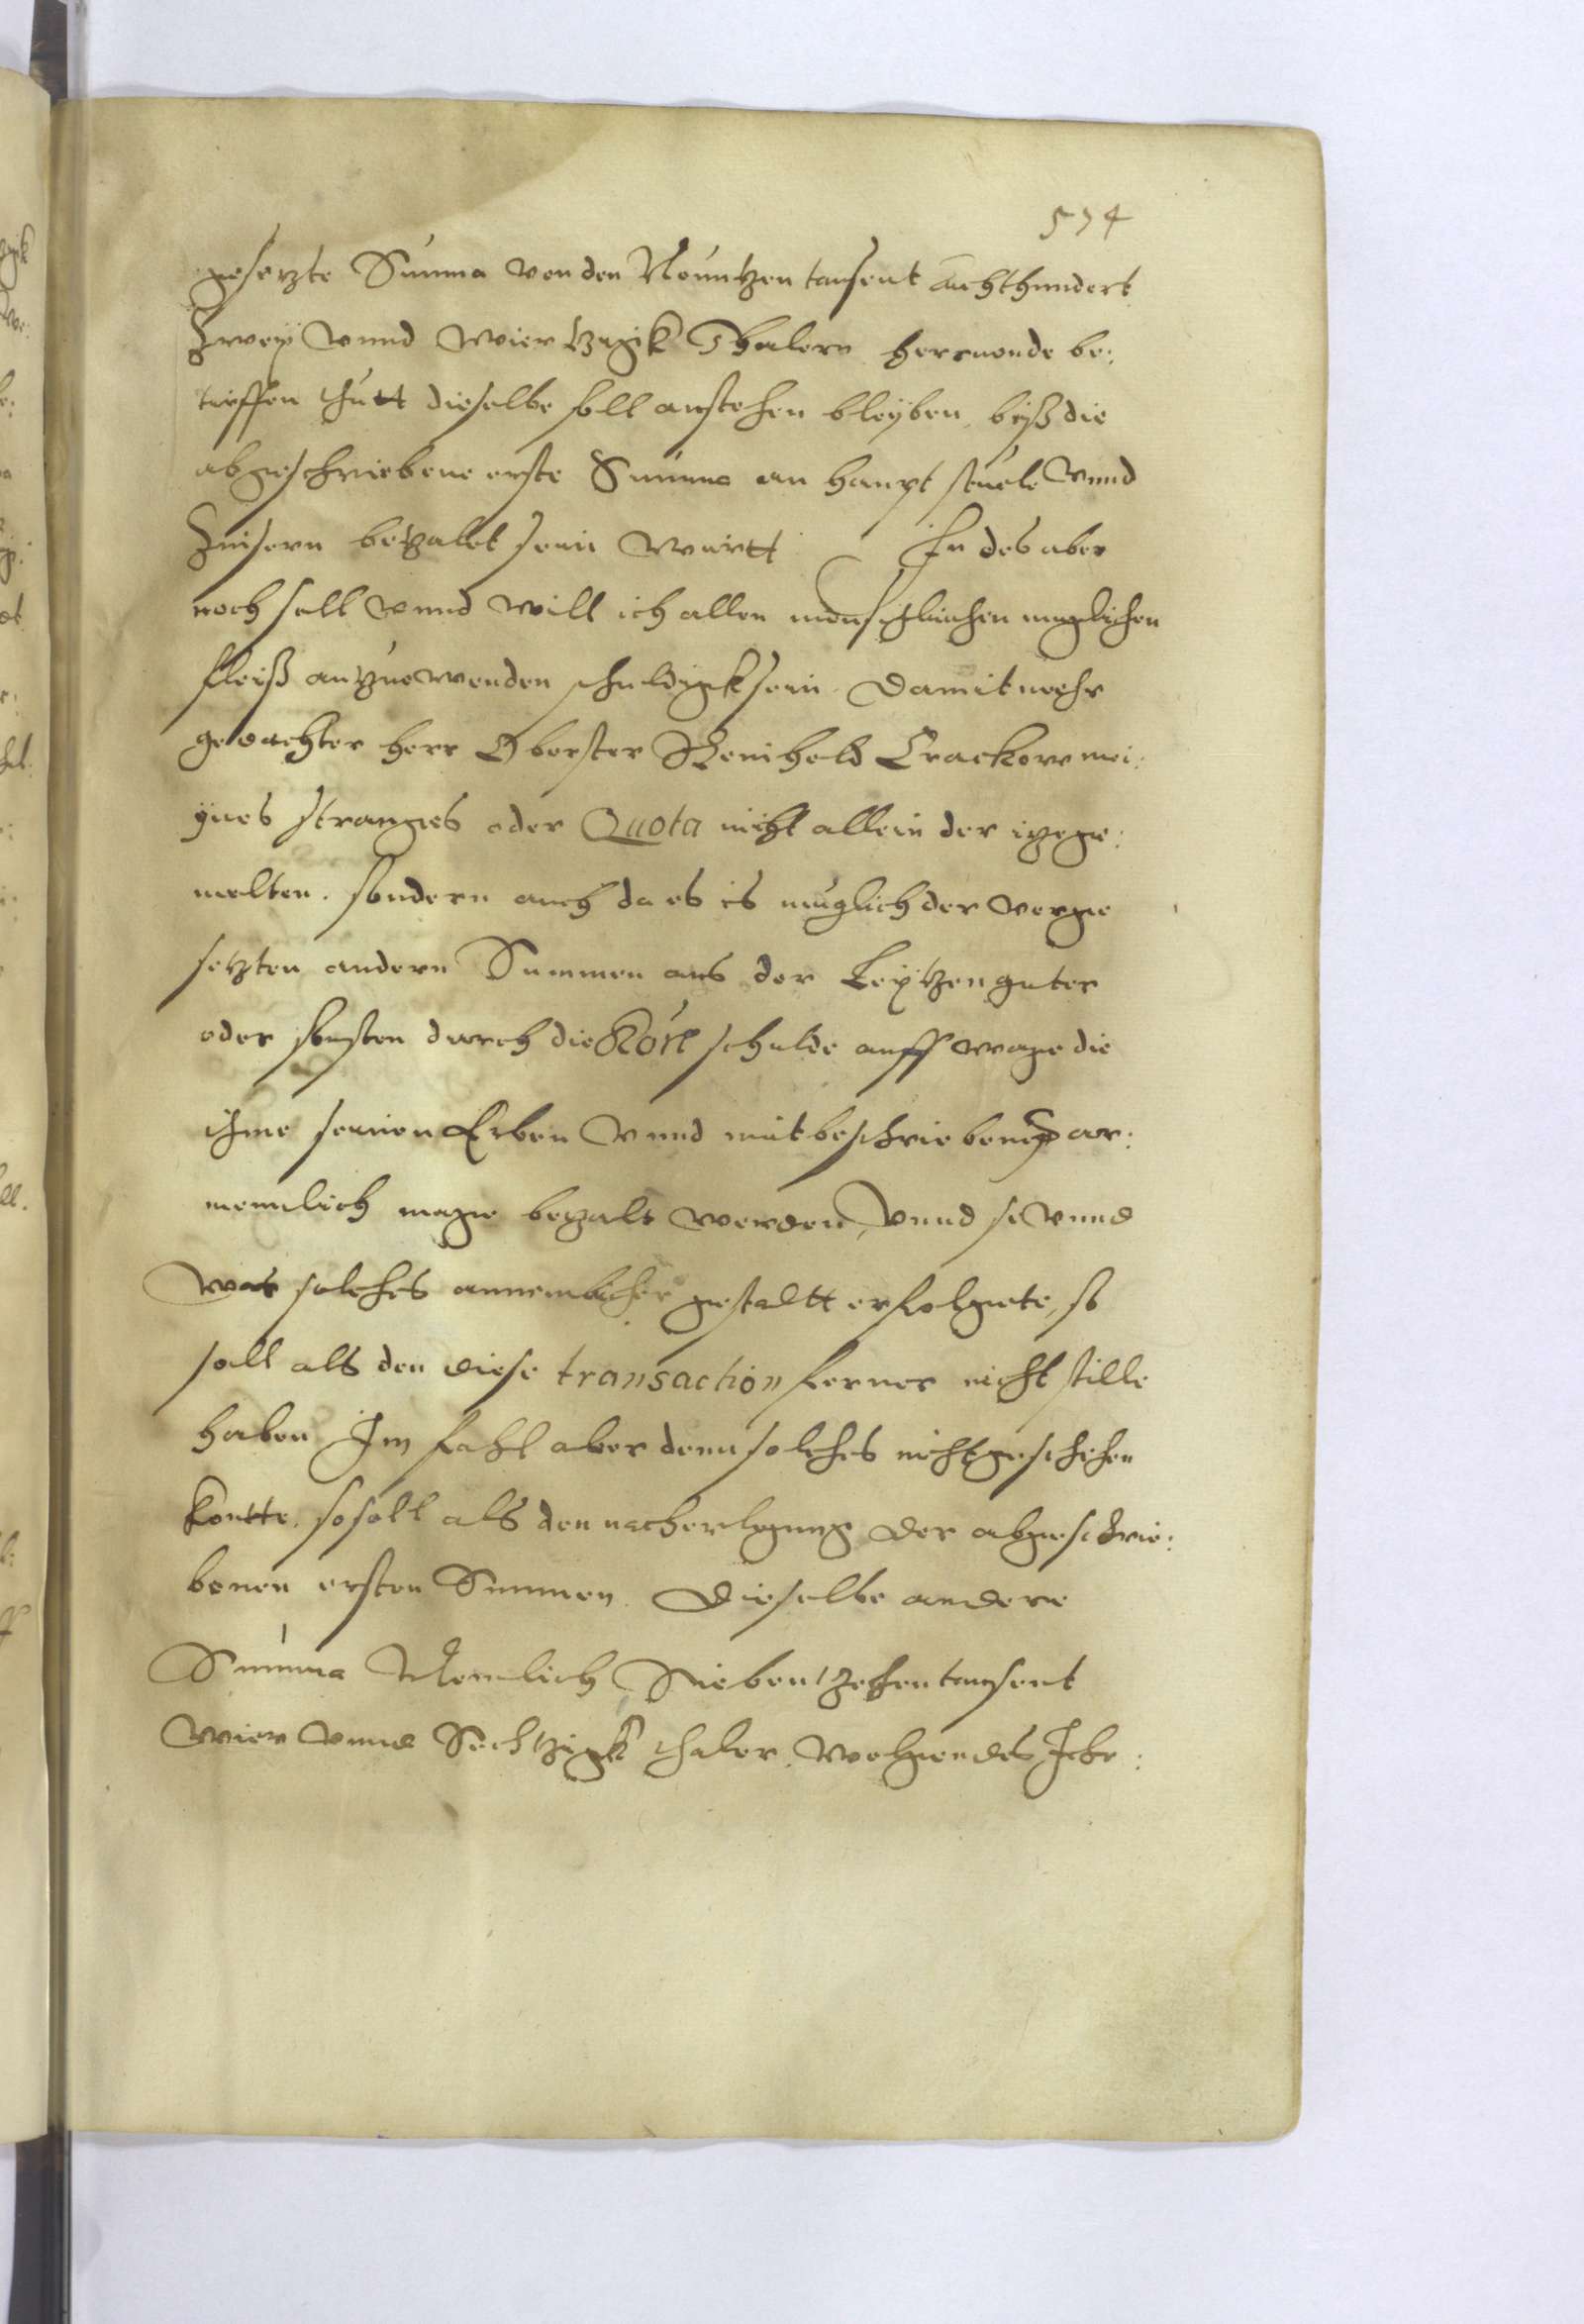 574
gesetzte Summa von den Neuntzen tausent achthundert
Zwey vnnd vviertzigk Thalern herruonde be:
treffen thutt dieselbe soll anstehen bleyben, byß die
abgeschriebene erste Summa an haupt stuele vnnd
Zinsern bezalet sein wurtt In des aber
noch soll vnnd will ich allen menschlichen muglichen
fleiß anzuewenden schuldigk sein. Damit mehr
gedachter herr Oberster Reinhold Crackow mei:
ynes stranges oder Quota nicht allein der itzge:
melten. sondern auch da es is muglich der vorge
setzten andern Summen aus der Leytzen guter
oder sonsten durch die schulde auff wege die
ihme seinen Erben vnnd mitbeschriebenen ar:
mennlich mage bezalt werden, vnnd so vnnd
wor solches annemlicher gestaldtt erfolgete, so
soll alß den diese transaction ferner nicht stille
haben Im fahl aber denn solches nicht geschehen
kontte. so soll alß den nach erlegung der abgeschrie:
benen ersten Summen. Dieselbe andere
Summa Nemlich Siebentzehentausent
vvier vnnd Sechtzigk thaler volgendes Jhr: